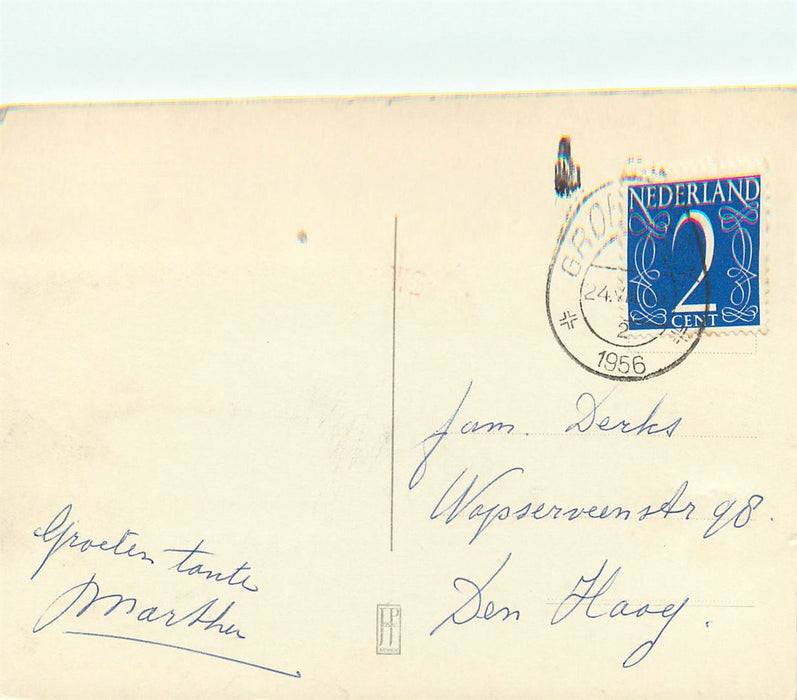 NEDERLAND
2
CENT
24.V
2
1956
fam. Derks
Wapserveenstr 98.
Den Haag.
Groeten tante
Martha